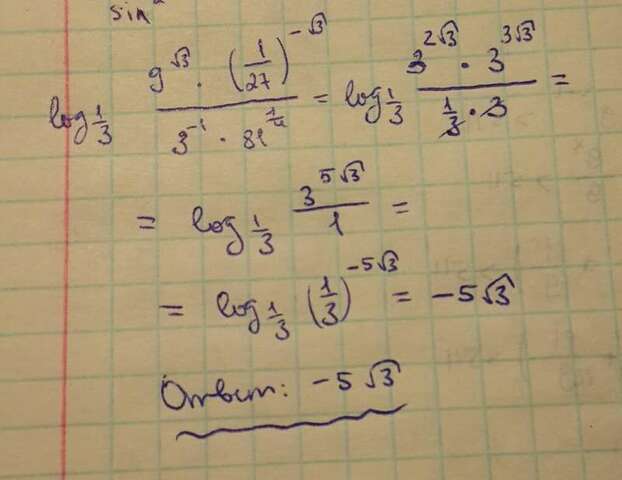 sin²
log_{1/3} \frac{9^{√3} · (1/27)^{-√3}}{3^{-1} · 81^{1/4}} = log_{1/3} \frac{3^{2√3} · 3^{3√3}}{\frac{1}{3} · 3} =
= log_{1/3} \frac{3^{5√3}}{1} =
= log_{1/3} (1/3)^{-5√3} = -5√3
Ответ: -5√3